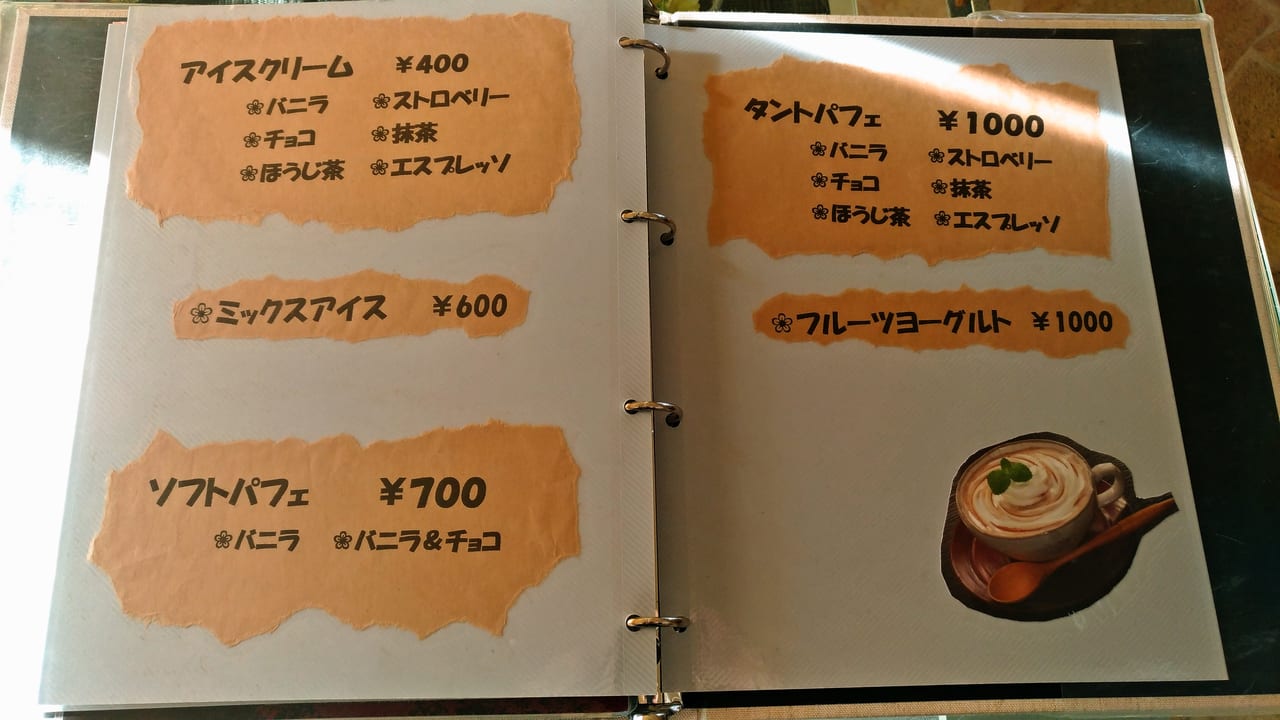 アイスクリーム ￥400
バニラ ストロベリー
チョコ 抹茶
ほうじ茶 エスプレッソ
ミックスアイス ￥600
ソフトパフェ ￥700
バニラ バニラ＆チョコ
タントパフェ ￥1000
バニラ ストロベリー
チョコ 抹茶
ほうじ茶 エスプレッソ
フルーツヨーグルト ￥1000